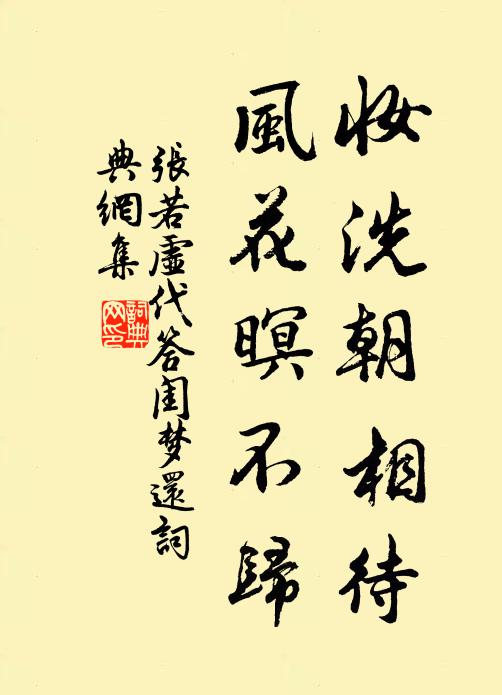 妆洗朝相待
風花暝不歸
張若虛代答闺梦還詞
典網集
詞典网印